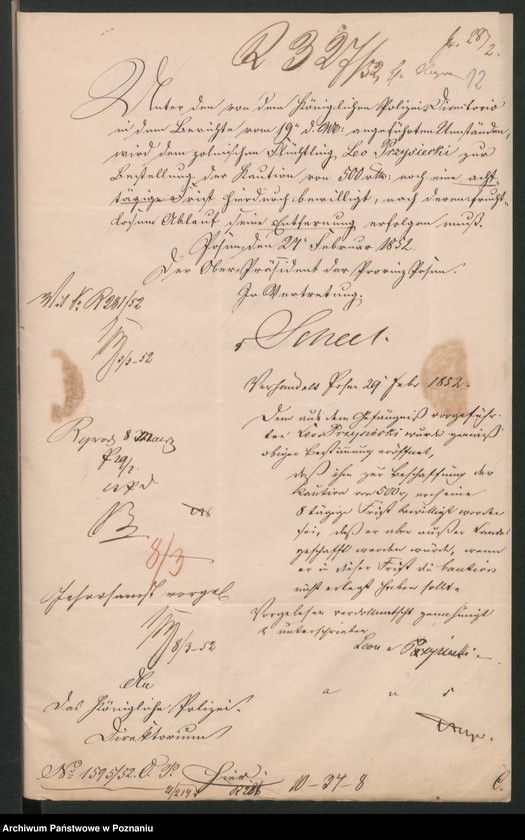 R 327/52
pr. 28/2.
12
Unter den von dem Königlichen Polizei Direktorio
in dem Berichte vom 19n d. Mts: angeführten Umständen,
wird dem polnischen Flüchtling Leo Przysiecki zur
Bestellung der Kaution von 500 rtl: noch eine acht-
tägige Frist hierdurch bewilligt, nach deren frucht-
losem Ablauf seine Entfernung erfolgen muß.
Posen, den 27n Februar 1852
Der Ober-Präsident der Provinz Posen.
In Vertretung.
Mit R 241/52
3/3-52
Verhandelt Posen 29n Febr 1852.
Dem aus dem Gefängniß vorgeführ-
ten Leo Przysiecki wurde gemäß
obiger Bestimmung eröffnet,
daß ihm zur Beschaffung der
Kaution von 500 r noch eine
8 tägige Frist bewilligt worden
sei, daß er aber außer Landes
geschafft werden würde, wenn
er in dieser Frist die Caution
nicht erlegt haben sollte.
Vorgelesen verdollmetscht genehmigt
unterschrieben
Leon Przysiecki
a u s
Reprod 8 März
29/2
8/3
vorgel
8/3-52
An
Das Königliche Polizei-
Direktorium
No 1595/52. O. P. Hier.
10-34-8
C.
Archiwum Państwowe w Poznaniu